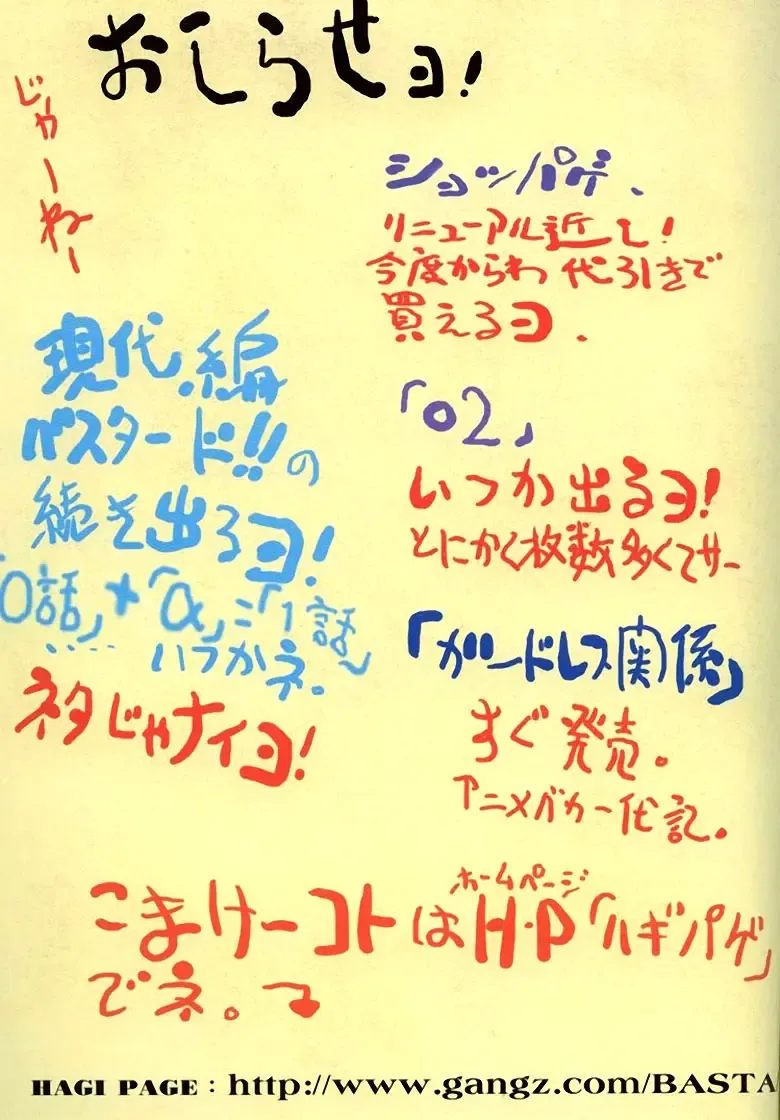 おしらせヨ!
ショッパゲ、
リニューアル近し!
今度からわ 代引きで
買えるヨ.
「02」
いつか出るヨ!
とにかく枚数多くてサー
「ガードレス関係」
すぐ発売。
アニメバカ一代記。
現代編
バスタード!!の
続き出るヨ!
「0話」+「α」=「1話〜
‥‥いつかネ。
ネタじゃナイヨ!
こまけーコトはH・P「ハギパゲ」
ホームページ
でネ。
じゃーねー
HAGI PAGE : http://www.gangz.com/BASTA